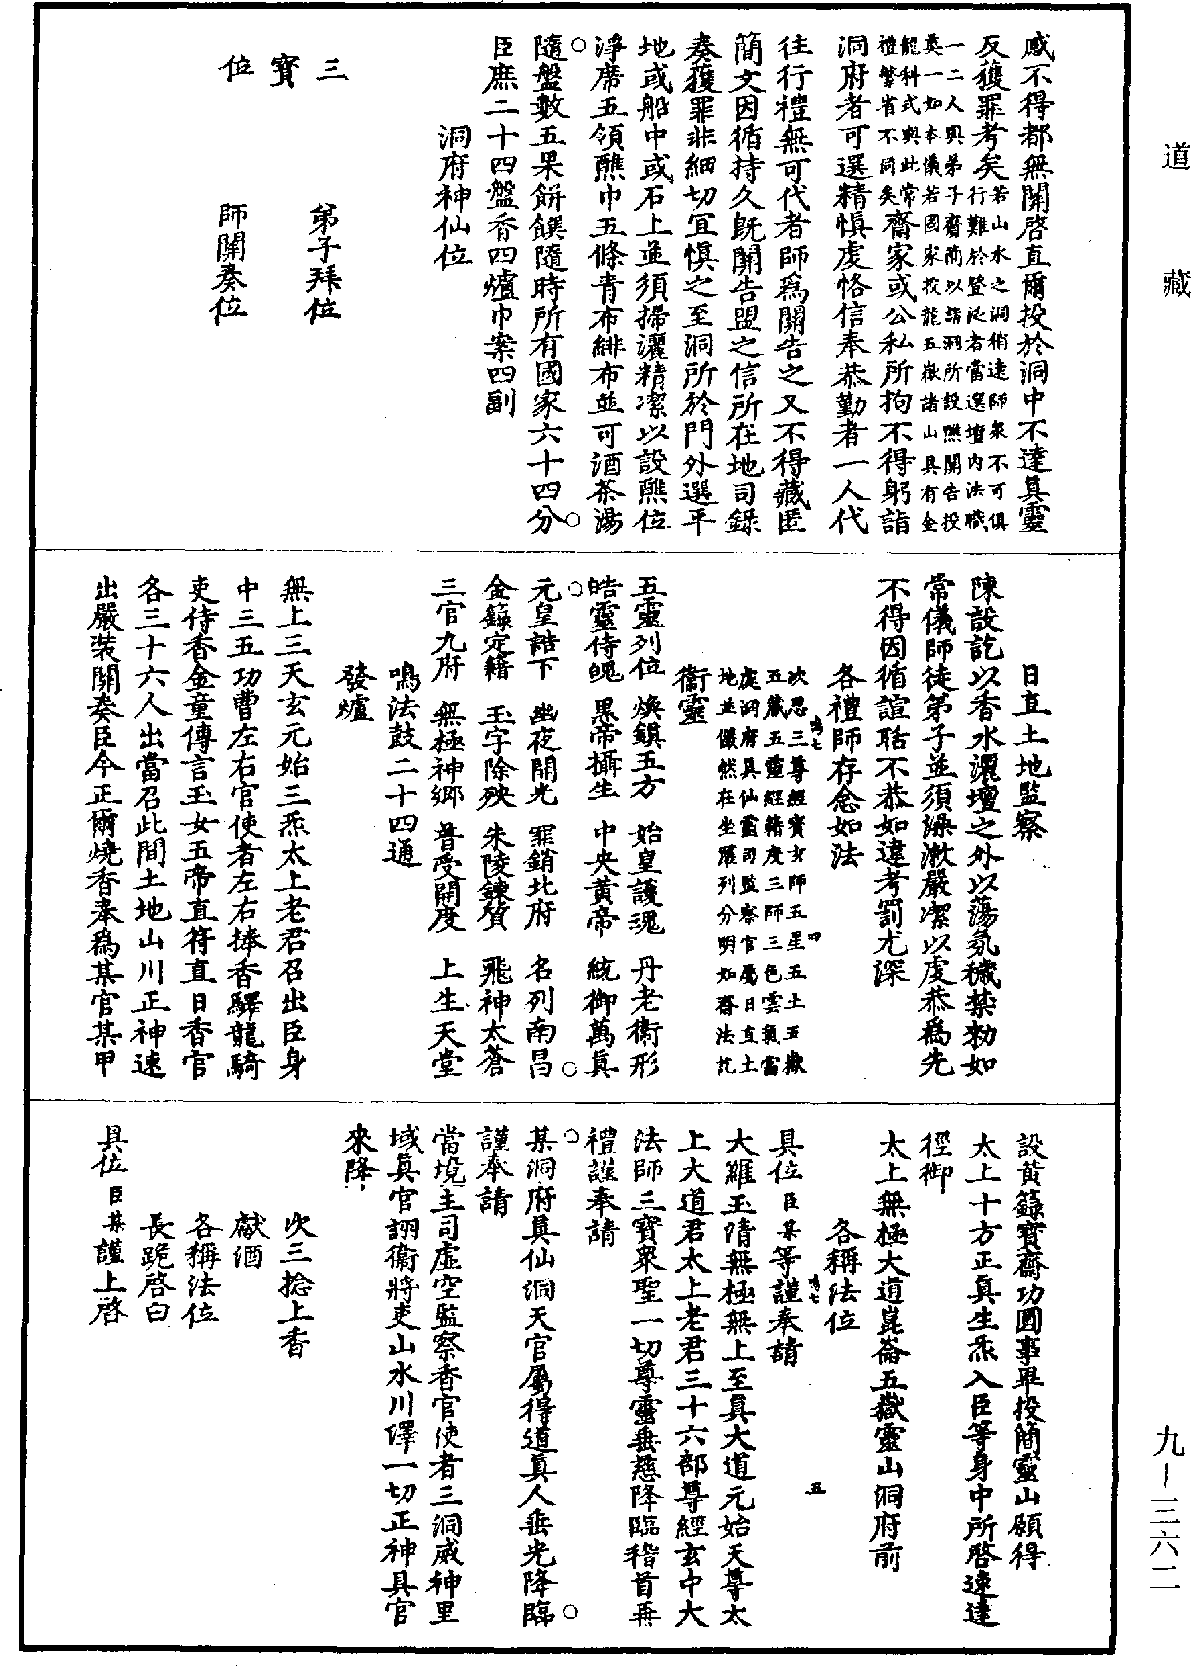 道藏
感不得都無關啓直爾投於洞中不達真靈
反獲罪考矣若山水之洞稍遠師衆不可俱
行難於登涉者當選壇内法職
一二人與弟子齋簡以詣洞所設醮關告投
奠一如本儀若國家投龍五嶽諸山具有金
龍科式與此常
禮繁省不同矣齋家或公私所拘不得躬詣
洞府者可選精慎虔恪信奉恭勤者一人代
往行禮無可代者師爲關告之又不得藏匿
簡文因循持久旣關告盟之信所在地司錄
奏獲罪非細切宜慎之至洞所於門外選平
地或船中或石上並須掃灑精潔以設醮位
淨席五領醮巾五條青布緋布並可酒茶湯
隨盤數五果餅饌隨時所有國家六十四分
臣庶二十四盤香四爐巾案四副
洞府神仙位
三 弟子拜位
寶
位 師關奏位
日直土地監察
陳設訖以香水灑壇之外以蕩氛穢禁勑如
常儀師徒弟子並須澡漱嚴潔以虔恭爲先
不得因循諠聒不恭如違考罰尤深
各禮師存念如法
鳴七 四
次思三尊經寶玄師五星五土五嶽
五藏五靈經籍度三師三色雲氣當
處洞府真仙靈司監察官屬日直土
地並儼然在坐羅列分明如齋法訖
衞靈
五靈列位 煥鎮五方 始皇護魂 丹老衞形
皓靈侍魄 黑帝攝生 中央黃帝 統御萬真
元皇誥下 幽夜開光 罪銷北府 名列南昌
金籙定籍 玉字除殃 朱陵鍊質 飛神太蒼
三官九府 無極神鄉 普受開度 上生天堂
鳴法鼓二十四通
發爐
無上三天玄元始三炁太上老君召出臣身
中三五功曹左右官使者左右捧香驛龍騎
吏侍香金童傳言玉女五帝直符直日香官
各三十六人出出當召此間土地山川正神速
出嚴裝關奏臣今正爾燒香奉爲某官某甲
設黃籙寶齋功圓事畢投簡靈山願得
太上十方正真生炁入臣等身中所啓速達
徑御
太上無極大道崑崙五嶽靈山洞府前
各稱法位
鳴七 五
具位臣某等謹奉請
大羅玉清無極無上至真大道元始天尊太
上大道君太上老君三十六部尊經玄中大
法師三寶衆聖一切尊靈垂慈降臨稽首再
禮謹奉請
某洞府真仙洞天官屬得道真人垂光降臨
謹奉請
當境主司虛空監察香官使者三洞威神里
域真官詡衞將吏山水川澤一切正神具官
來降
次三捻上香
獻酒
各稱法位
長跪啓白
具位臣某謹上啓
九—三六二